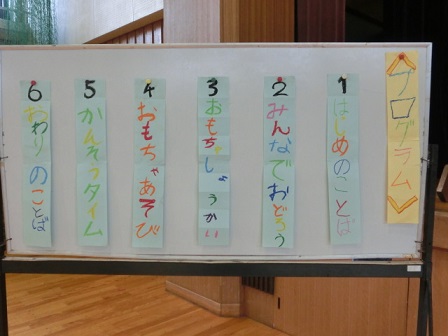 プログラム
1 はじめのことば
2 みんなでおどろう
3 おもちゃしょうかい
4 おもちゃあそび
5 かんそうタイム
6 おわりのことば